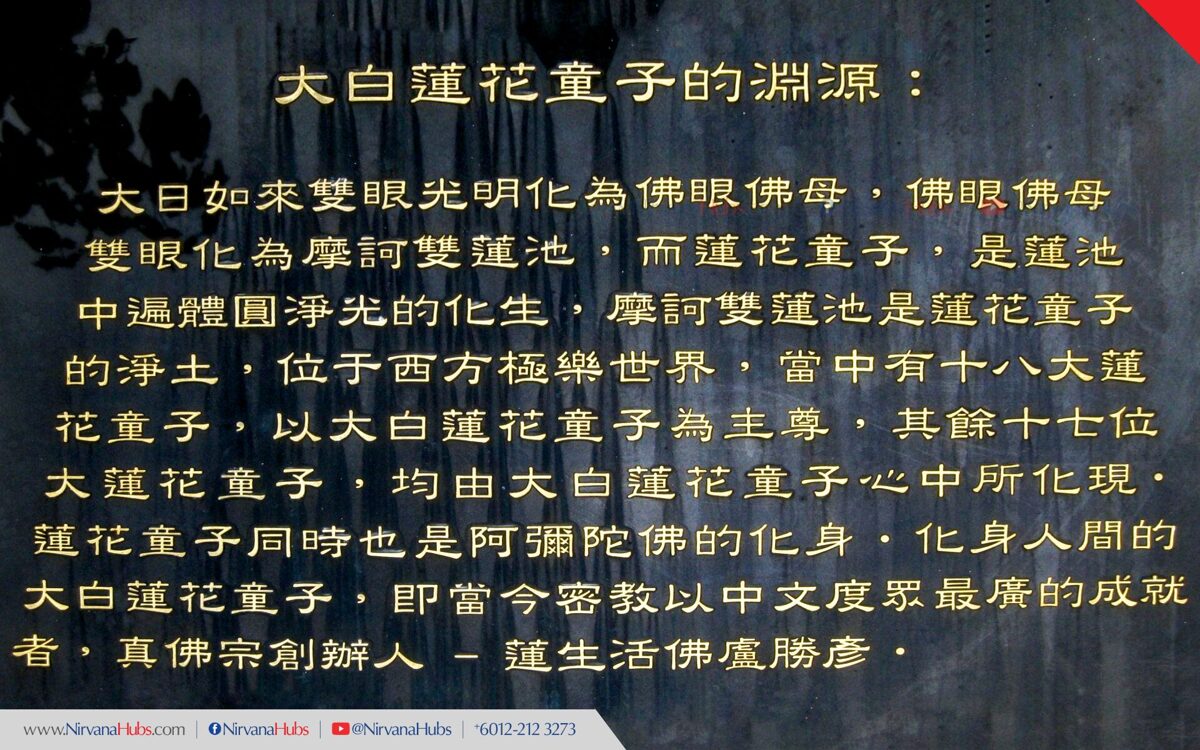 大白蓮花童子的淵源：
大日如來雙眼光明化為佛眼佛母，佛眼佛母
雙眼化為摩訶雙蓮池，而蓮花童子，是蓮池
中遍體圓淨光的化生，摩訶雙蓮池是蓮花童子
的淨土，位于西方極樂世界，當中有十八大蓮
花童子，以大白蓮花童子為主尊，其餘十七位
大蓮花童子，均由大白蓮花童子心中所化現．
蓮花童子同時也是阿彌陀佛的化身．化身人間的
大白蓮花童子，即當今密教以中文度眾最廣的成就
者，真佛宗創辦人 – 蓮生活佛盧勝彥．
www.NirvanaHubs.com | NirvanaHubs | @NirvanaHubs | +6012-212 3273